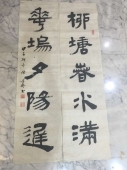 柳塘春水滿
花塢夕陽遲